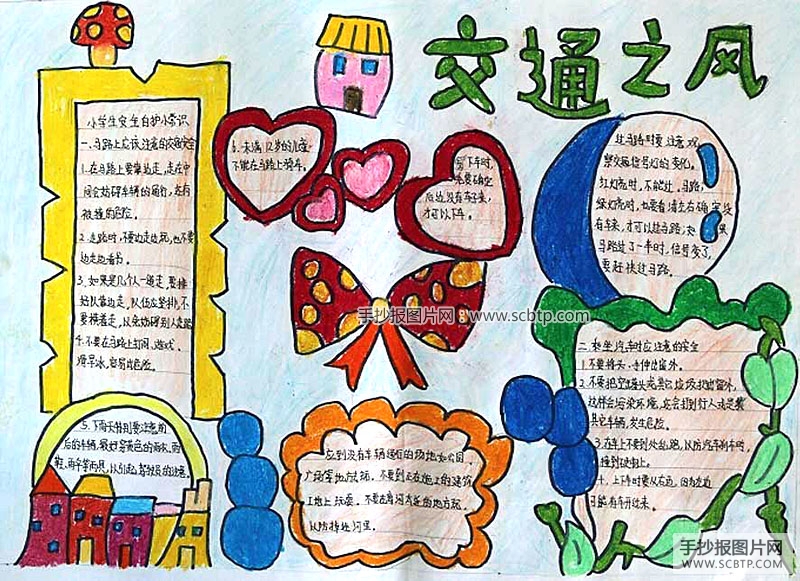 交通之风
小学生安全自护小常识
一、马路上应该注意的交通安全
1.在马路上要靠边走,走在中
间会妨碍车辆的通行,还有
被撞的危险。
2.走路时,不要边走边玩,也不要
边走边看书。
3.如果是几个人一道走,要排
站队靠边走,队伍应竖排,不
要横着走,以免妨碍别人走路
4.不要在马路上打闹、游戏、
滑旱冰,容易出危险。
5.下雨天特别要注意前
后的车辆,最好穿黄色的雨衣、雨
鞋、雨伞等雨具,以引起驾驶员的注意。
6.未满12岁的儿童
不能在马路上骑车。
下车时,
要确定
后边没有车子来,
才可以下车。
过马路时要注意观
察交通信号灯的变化。
红灯亮时,不能过马路,
绿灯亮时,也要看清左右确实没
有车来,才可以过马路,如果
马路过了一半时,信号变了,
要赶快过马路。
手抄报图片网:www.scbtp.com
二、乘坐汽车时应注意的安全
1.不要将头、手伸出窗外。
2.不要把空罐头壳或其它垃圾扔出窗外,
这样会污染环境,或会打到行人或是紧
其它车辆,发生危险。
3.在车上不要到处乱跑,以防汽车刹车时,
撞到硬物上。
4.上下车时要从右边,因为左边
可能有车开过来。
应到没有车辆通行的场地如公园、
广场等地试玩,不要到正在施工的建筑
工地上玩耍,不要在有河道近的地方玩,
以防掉进河里。
手抄报图片网
WWW.SCBTP.COM